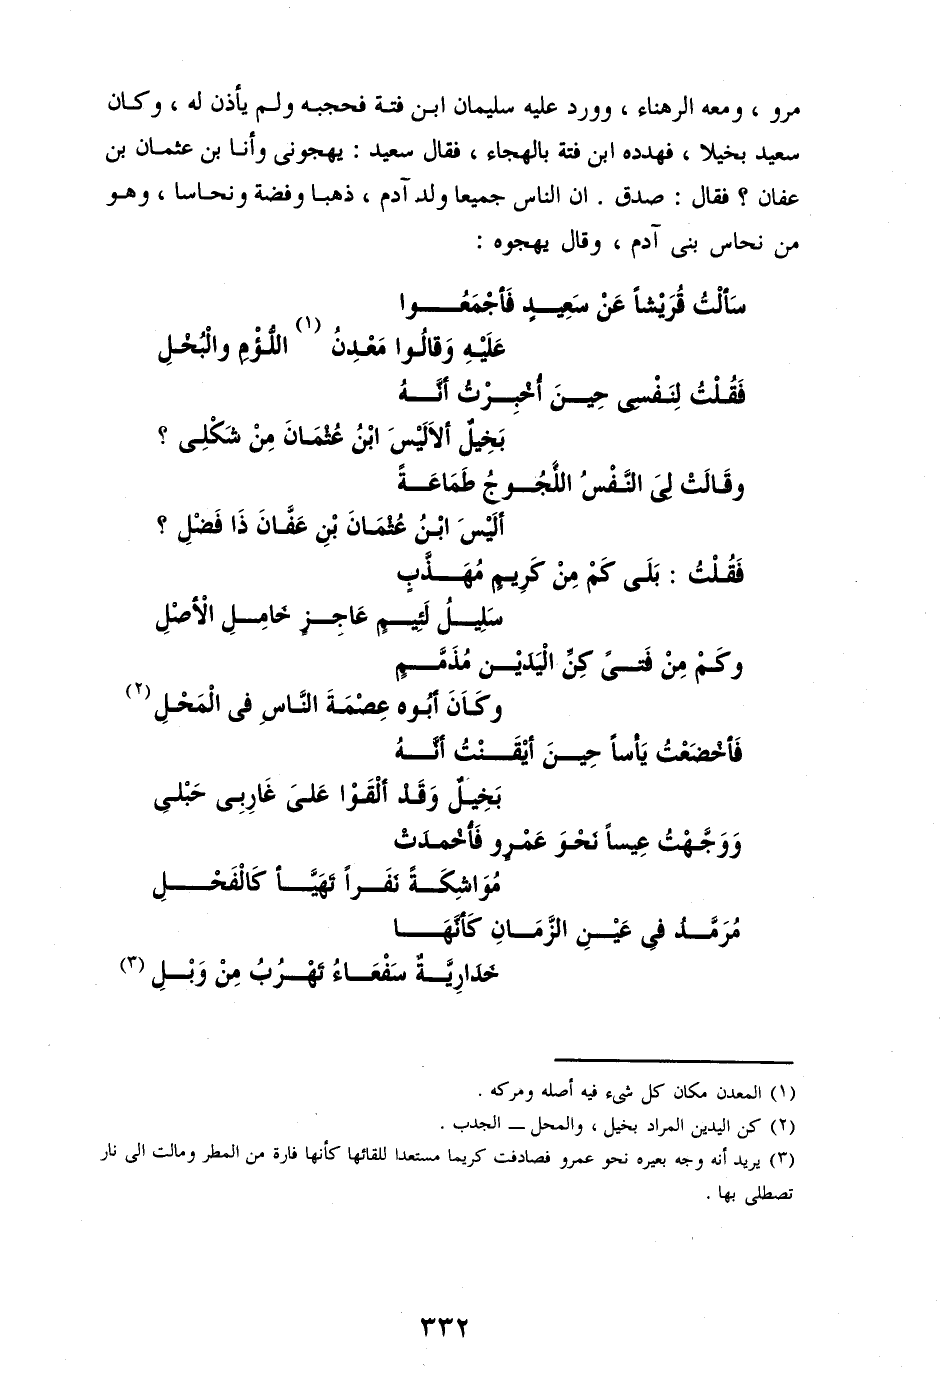 مرو ، ومعه الرهناء ، وورد عليه سليمان ابن فتة فحجبه ولم يأذن له ، وكان
سعيد بخيلا ، فهدده ابن فتة بالهجاء ، فقال سعيد : يهجونى وأنا بن عثمان بن
عفان ؟ فقال : صدق . ان الناس جميعا ولد آدم ، ذهبا وفضة ونحاسا ، وهو
من نحاس بنى آدم ، وقال يهجوه :
سَأَلْتُ قُرَيْشاً عَنْ سَعِيدٍ فَأَجْمَعُوا
عَلَيْهِ وَقالُوا مَعْدِنُ (١) اللُّؤْمِ والْبُخْلِ
فَقُلْتُ لِنَفْسِى حِينَ أُخْبِرْتُ أَنَّهُ
بَخِيلٌ ألاَلَيْسَ ابْنُ عُثْمَانَ مِنْ شَكْلِى ؟
وقَالَتْ لِىَ النَّفْسُ اللَّجُوجُ طَمَاعَةً
أَلَيْسَ ابْنُ عُثْمَانَ بْنِ عَفَّانَ ذَا فَضْلِ ؟
فَقُلْتُ : بَلَى كَمْ مِنْ كَرِيمٍ مُهَذَّبٍ
سَلِيلُ لَئِيمٍ عَاجِزٍ خَامِلِ الْأَصْلِ
وكَمْ مِنْ فَتىً كِنِّ الْيَدَيْنِ مُذَمَّمٍ
وكَانَ أَبُوه عِصْمَةَ النَّاسِ فى الْمَحْلِ (٢)
فَأَخْضَعْتُ يَأساً حِينَ أَيْقَنْتُ أَنَّهُ
بَخِيلٌ وَقَدْ أَلْقَوْا عَلىَ غَارِبِى حَبْلِى
وَوَجَّهْتُ عِيساً نَحْوَ عَمْرٍو فَأَخْمدَتْ
مُوَاشِكَةً نَفَراً تَهَيَّأَ كَالْفَحْلِ
مُرَمَّدُ فىِ عَيْنِ الزَّمَانِ كَأَنَّهَا
خَدَارِيَّةٌ سَفْعَاءُ تَهْرُبُ مِنْ وَبْلِ (٣)
(١) المعدن مكان كل شىء فيه أصله ومركه .
(٢) كن اليدين المراد بخيل ، والمحل ــ الجدب .
(٣) يريد أنه وجه بعيره نحو عمرو فصادفت كريما مستعدا للقائها كأنها فارة من المطر ومالت الى نار
تصطلى بها .
٣٣٢